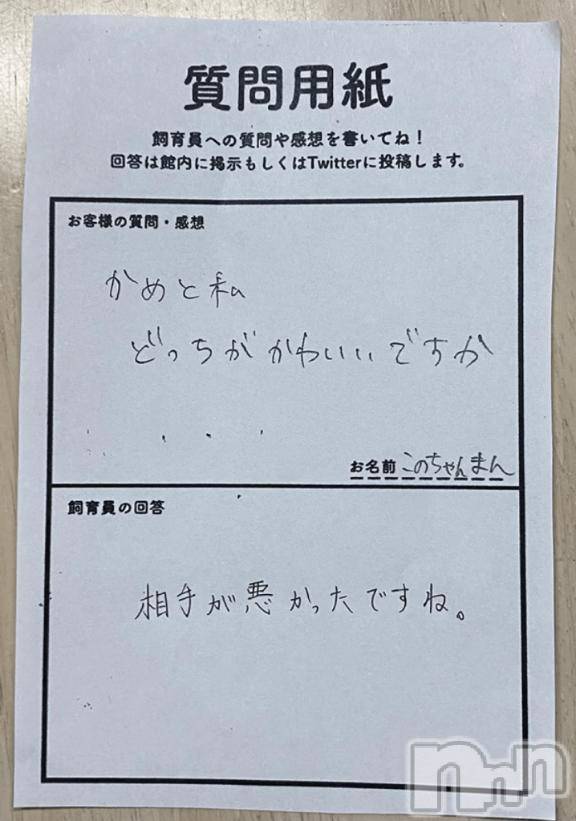 質問用紙
飼育員への質問や感想を書いてね！
回答は館内に掲示もしくはTwitterに投稿します。
お客様の質問・感想
かめと私
どっちがかわいいですか
お名前 このちゃんまん
飼育員の回答
相手が悪かったですね。